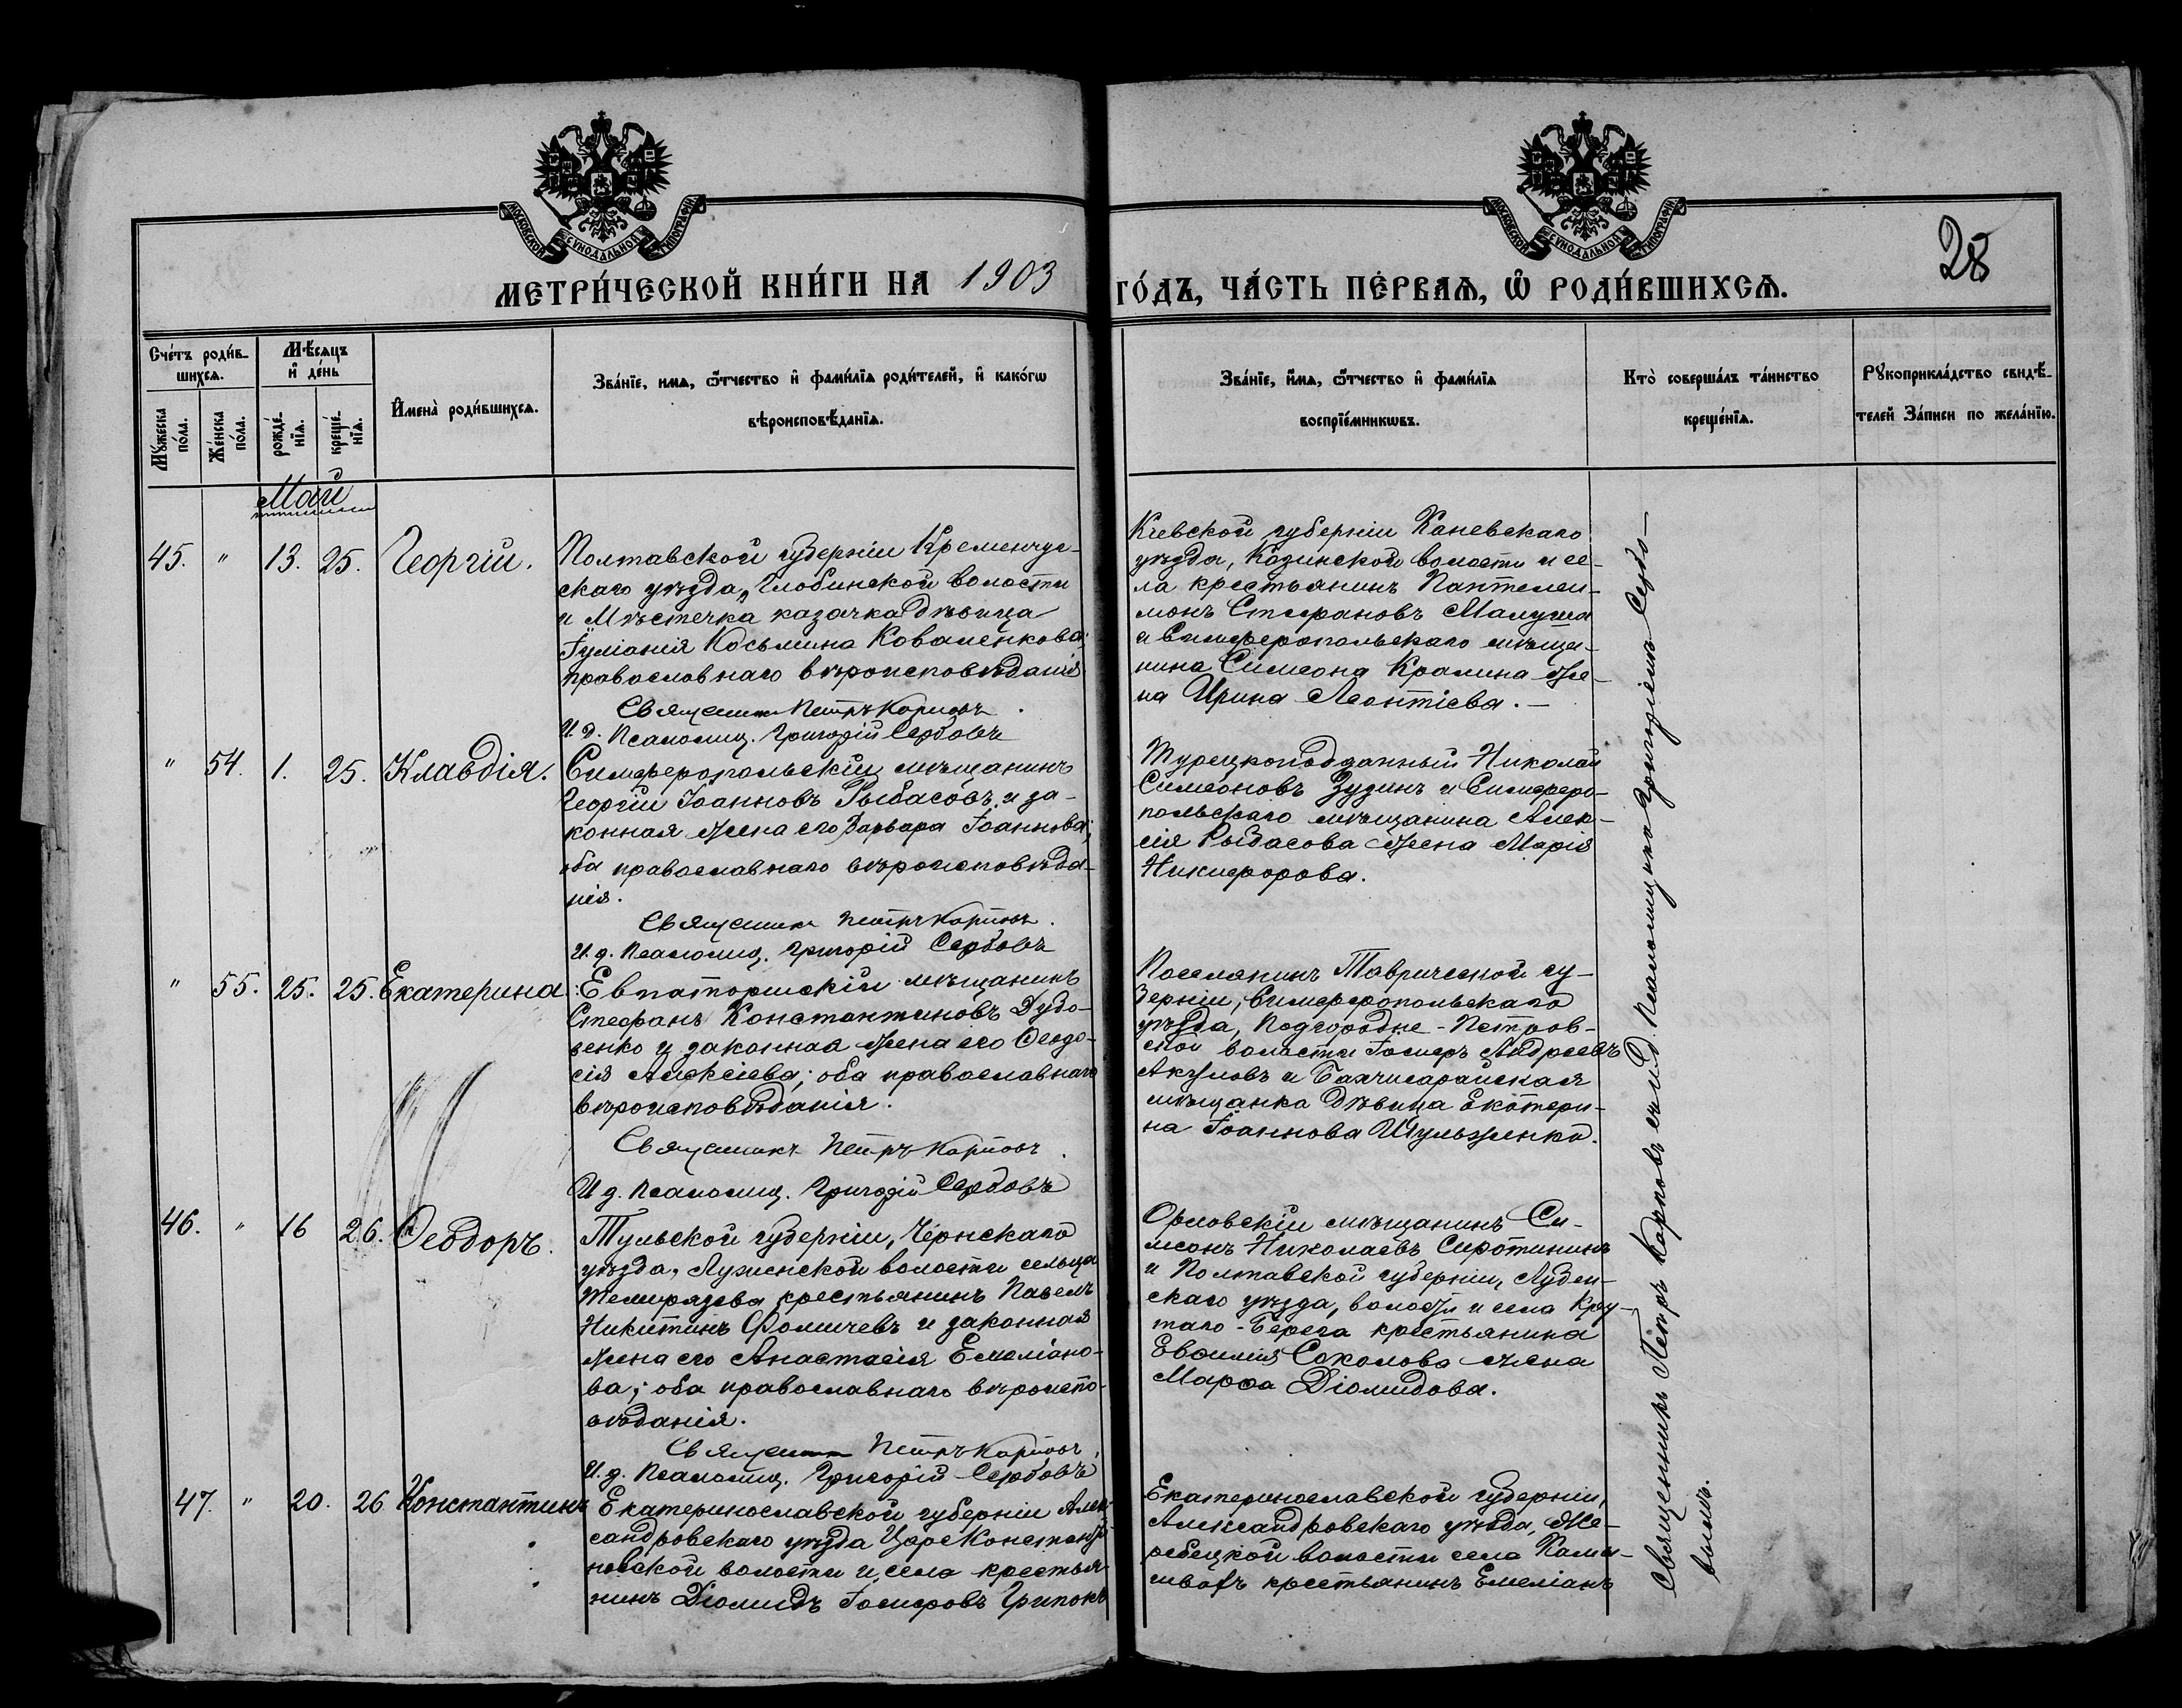 МОСКОВСКОЙ СѴНОДАЛЬНОЙ ТИПОГРАФІИ
МОСКОВСКОЙ СѴНОДАЛЬНОЙ ТИПОГРАФІИ
28
МЕТРИ́ЧЕСКОЙ КНИ́ГИ НА 1903 ГО́ДЪ, ЧА́СТЬ ПЕ́РВАѦ, Ѽ РОДИ́ВШИХСѦ.
Сче́тъ роди́в-
шихсѧ.
Мꙋ́жеска
по́ла.
Же́нска
по́ла.
Мѣ́сѧцъ
и҆ де́нь
рожде́-
нїѧ.
креще́-
нїѧ.
И҆мена̀ роди́вшихсѧ.
Зва́нїе, имѧ, ѻ҆́тчество и҆ фами́лїѧ роди́телей, и҆ како́гѡ
вѣроисповѣ́данїѧ.
Зва́нїе, и҆́мѧ, ѻ҆́тчество и҆ фами́лїѧ
воспрїе́мникѡвъ.
Кто̀ соверша́лъ та́инство
креще́нїѧ.
Рꙋкоприкла́дство свидѣ́-
телей За́писи по жела́нїю.
Май
45. " 13. 25. Георгій.
Полтавской губерніи Кременчуг-
скаго уѣзда, Глобинской волости
и Мѣстечка казачка дѣвица
Іуліанія Косьмина Коваленкова;
православнаго вѣроисповѣданія
Священникъ Петръ Карповъ
И. д. Псаломщ. Григорій Сербовъ
Кіевской губерніи Каневскаго
уѣзда, Козинской волости и се-
ла крестьянинъ Пантелеи-
монъ Стефановъ Малуша
и Симферопольскаго мѣща-
нина Симеона Крамина же-
на Ирина Леонтіева. —
" 54. 1. 25. Клавдія.
Симферопольскій мѣщанинъ
Георгій Іоанновъ Рыбасовъ и за-
конная жена его Варвара Іоаннова;
оба православнаго вѣроисповѣда-
нія.
Священникъ Петръ Карповъ.
И. д. Псаломщ. Григорій Сербовъ
Турецкоподданный Николай
Симеоновъ Зузинъ и Симферо-
польскаго мѣщанина Алек-
сія Рыбасова жена Марія
Никифорова.
" 55. 25. 25. Екатерина.
Евпаторійскій мѣщанинъ
Стефанъ Константиновъ Дубо-
венко и законная жена его Ѳеодо-
сія Алексіева; оба православнаго
вѣроисповѣданія.
Священникъ Петръ Карповъ.
И. д. Псаломщ. Григорій Сербовъ
Поселянинъ Таврической гу-
берніи, Симферопольскаго
уѣзда, Подгородне-Петров-
ской волости Іосифъ Андреевъ
Акуловъ и Бахчисарайская
мѣщанка дѣвица Екатери-
на Іоаннова Шульженко.
46. " 16 26. Ѳеодоръ.
Тульской губерніи, Чернскаго
уѣзда, Луженской волости сельца
Темирязева крестьянинъ Павелъ
Никитинъ Фомичевъ и законная
жена его Анастасія Емеліано-
ва; оба православнаго вѣроиспо-
вѣданія.
Священникъ Петръ Карповъ.
И. д. Псаломщ. Григорій Сербовъ
Орловскій мѣщанинъ Си-
меонъ Николаевъ Сиротининъ
и Полтавской губерніи, Лубен-
скаго уѣзда, волости и села Кру-
таго-Берега крестьянина
Евѳимія Соколова жена
Марѳа Діомидова.
47. " 20. 26 Константинъ
Екатеринославской губерніи Алек-
сандровскаго уѣзда Царе Константи-
новской волости и села крестья-
нинъ Діомидъ Іосифовъ
Екатеринославской губерніи,
Александровскаго уѣзда, Же-
ребецкой волости села Камы-
шевахъ крестьянинъ Емеліанъ
Священникъ Петръ Карповъ съ и. д. Псаломщика Григоріемъ Сербо-
вымъ.